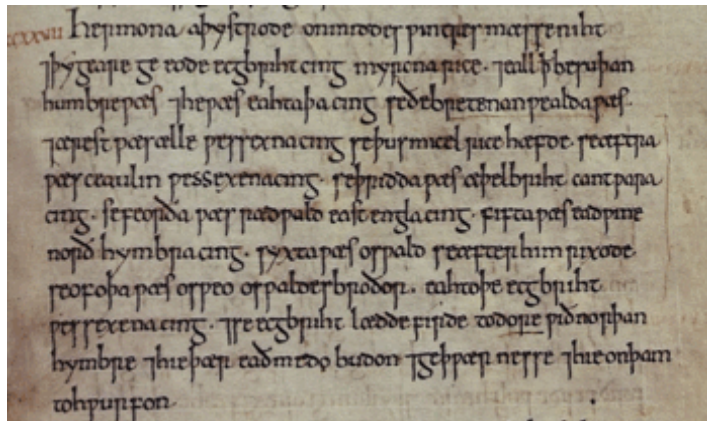 cccxxvii Her mona aþystrode on middes ƿintres mæsse niht
⁊ þy geare ge eode ecgbriht cing myrcna rice · ⁊ eall þ̄ be suþan
humbre ƿæs ⁊ he ƿæs eahtaþa cing se ðe bretenanƿealda ƿæs ·
⁊ ærest ƿæs ælle ƿessexna cing se þus micel rice hæfde · se æftra
ƿæs ceaulin ƿessexena cing · se þridda ƿæs æþelbriht cantƿara
cing · se feorða ƿæs rædƿald east engla cing · fifta ƿæs eadƿine
norð hymbra cing · syxta ƿæs osƿald se æfter him rixode
seofoþa ƿæs osƿeo osƿaldes broðor · eahtoþe ecgbriht
ƿessexena cing · ⁊ se ecgbriht lædde firde to dore ƿið norþan
hymbre ⁊ hie þær eadmedo budon ⁊ geþƿærnesse ⁊ hie on þam
tohƿurfon